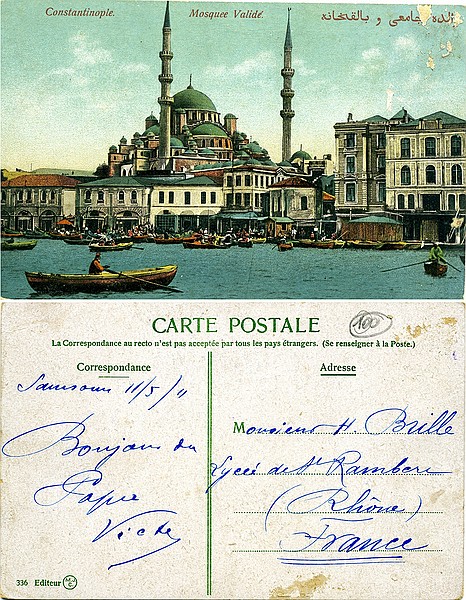 Constantinople. Mosquee Validé.
جامعى و بالقخانه
CARTE POSTALE
100
La Correspondance au recto n'est pas acceptée par tous les pays étrangers. (Se renseigner à la Poste.)
Correspondance
Adresse
Samsoun 11/5/11
Bonjour du
Papa
Monsieur H. Brille
Lycée de St Rambert
(Rhône)
France
336 Editeur